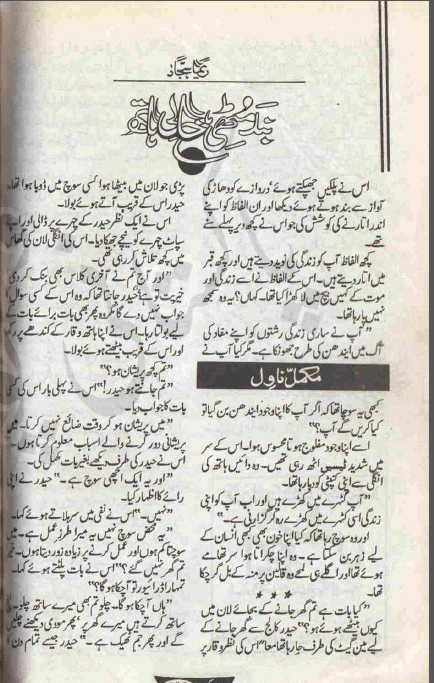 رُمیلا سجاد
بند مُٹھی خالی ہاتھ
اس نے پلکیں جھپکتے ہوئے، دروازے کو دھاڑ کی
آواز سے بند ہوتے ہوئے دیکھا اور ان الفاظ کو اپنے
اندر اتارنے کی کوشش کی جو اس نے کچھ دیر پہلے سنے
تھے۔
کچھ الفاظ آپ کو زندگی کی نوید دیتے ہیں اور کچھ قبر
میں اتار دیتے ہیں۔ اس کے الفاظ نے اسے زندگی اور
موت کے کہیں بیچ میں لا کھڑا کیا تھا۔ کہاں؟ یہ وہ سمجھ
نہیں پا رہا تھا۔
"آپ نے ساری زندگی رشتوں کو اپنے مفاد کی
آگ میں ایندھن کی طرح جھونکا ہے۔ مگر کیا آپ نے
مکمل ناول
کبھی یہ سوچا تھا کہ اگر آپ کا اپنا وجود ایندھن بن گیا تو
کیا کریں گے آپ؟"
اسے اپنا وجود مفلوج ہوتا محسوس ہوا۔ اس کے سر
میں شدید ٹیسیں اٹھ رہی تھیں۔ وہ دائیں ہاتھ کی
انگلی سے اپنی کنپٹی کو دبا رہا تھا۔
"آپ کٹہرے میں کھڑے ہیں اور اب آپ کو اپنی
زندگی اسی کٹہرے میں کھڑے رہ کر گزارنی ہے۔"
اور وہ سوچ رہا تھا کہ کیا اپنا خون بھی کبھی انسان کے
لیے زہر بن سکتا ہے۔ وہ اپنا چکراتا ہوا سر تھامے
ہوئے تھا اور اگلے ہی لمحے وہ قالین پر منہ کے بل گر چکا
تھا۔
* * *
"کیا بات ہے تم گھر جانے کے بجائے لان میں
کیوں بیٹھے ہوئے ہو؟" حیدر کالج سے گھر جانے کے
لیے مین گیٹ کی طرف جا رہا تھا معاً اس کی نظر وقار پر
پڑی جو لان میں بیٹھا ہوا کسی سوچ میں ڈوبا ہوا تھا۔
حیدر اس کے قریب آتے ہوئے بولا۔
اس نے ایک نظر حیدر کے چہرے پر ڈالی اور اپنے
سپاٹ چہرے کو نیچے جھکا دیا۔ اس کی انگلی لان کی گھاس
میں کچھ تلاش کر رہی تھی۔
"اور آج تم نے آخری کلاس بھی بنک کر دی
خیریت تو ہے؟" حیدر جانتا تھا کہ وہ اس کے کسی سوال کا
جواب نہیں دے گا مگر وہ پھر بھی بات برائے بات کے
لیے بولتا رہا۔ اس نے اپنا ہاتھ وقار کے کندھے پر رکھا
اور اس کے قریب بیٹھتے ہوئے بولا۔
"تم کچھ پریشان ہو؟"
"تم جانتے ہو حیدر!" اس نے پہلی بار اس کی کسی
بات کا جواب دیا۔
"میں پریشان ہو کر وقت ضائع نہیں کرتا۔ میں
پریشانی دور کرنے والے اسباب معلوم کرتا ہوں۔"
اس نے حیدر کی طرف دیکھے بغیر بات مکمل کی۔
"اور یہ ایک اچھی سوچ ہے۔" حیدر نے اپنی
رائے کا اظہار کیا۔
"نہیں۔" اس نے نفی میں سر ہلاتے ہوئے کہا۔
"یہ محض سوچ نہیں یہ میرا طرز عمل ہے۔ میں
سوچتا کم ہوں اور عمل کرنے پر زیادہ زور دیتا ہوں۔ خیر
تم گھر نہیں گئے؟" اس نے بات پلٹتے ہوئے کہا۔
تمہارا ڈرائیور تو آ چکا ہوگا؟"
"ہاں آ چکا ہوگا۔ چلو تم بھی میرے ساتھ چلو
ساتھ کرتے ہیں میرے گھر پر پھر مووی دیکھنے چلیں
گے اور پھر جم ٹھیک ہے۔" حیدر جیسے تمام دن کا